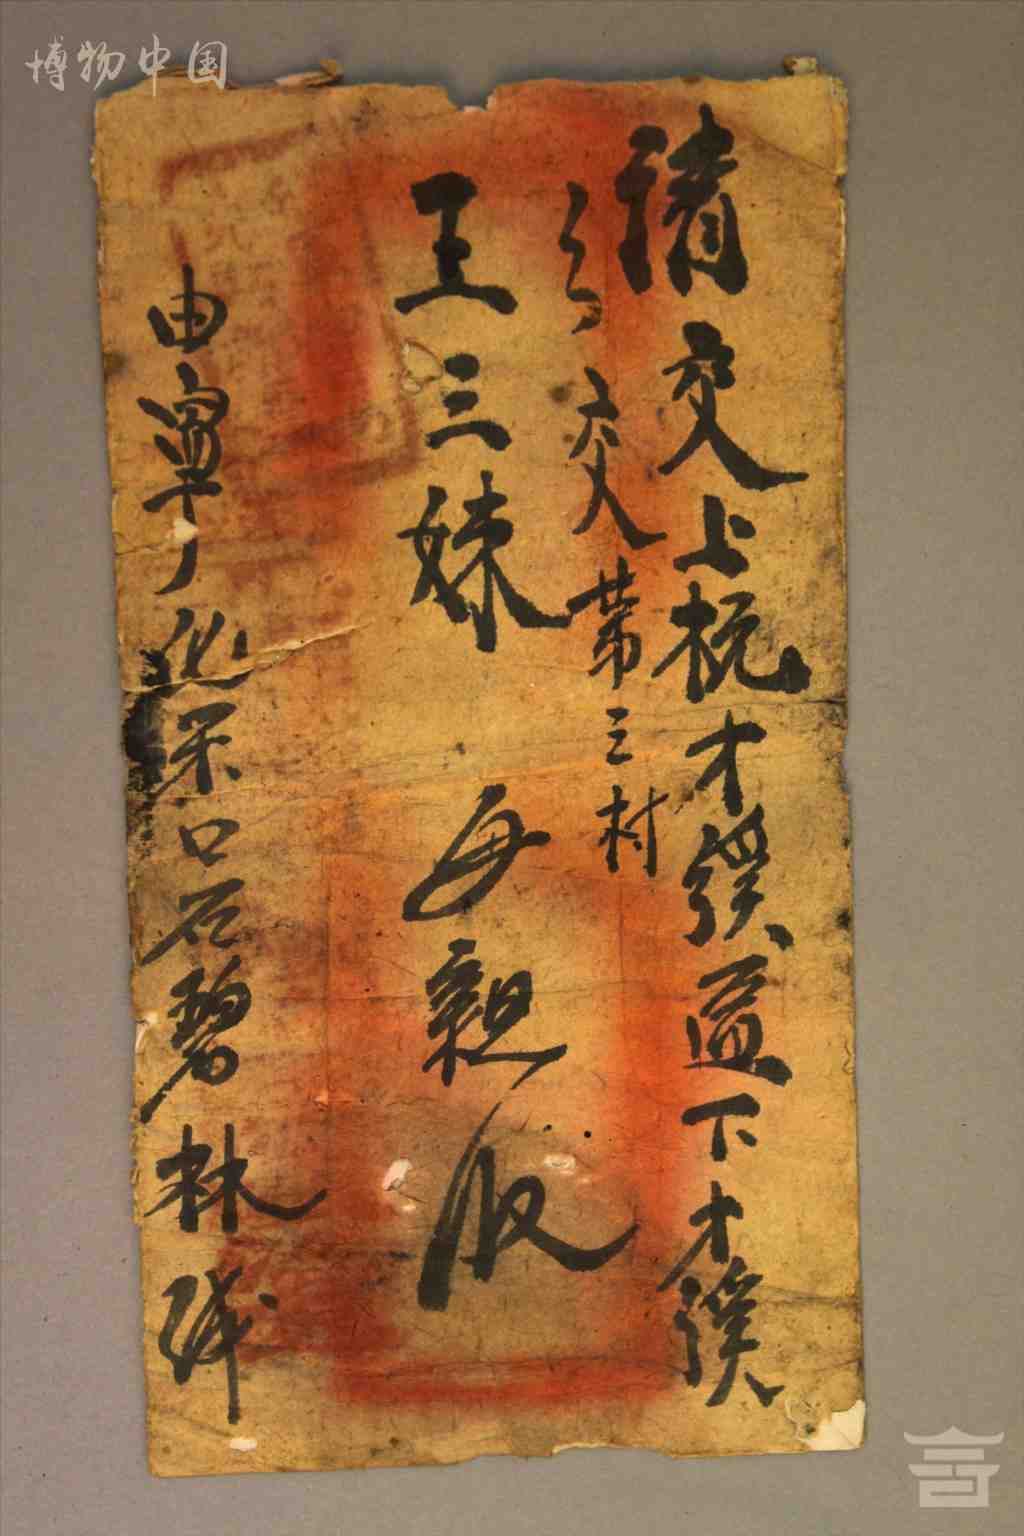 博物中国
请交上杭才溪區下才溪
交苐三村
王三妹 母親收
由寧化禾口石碧林缄